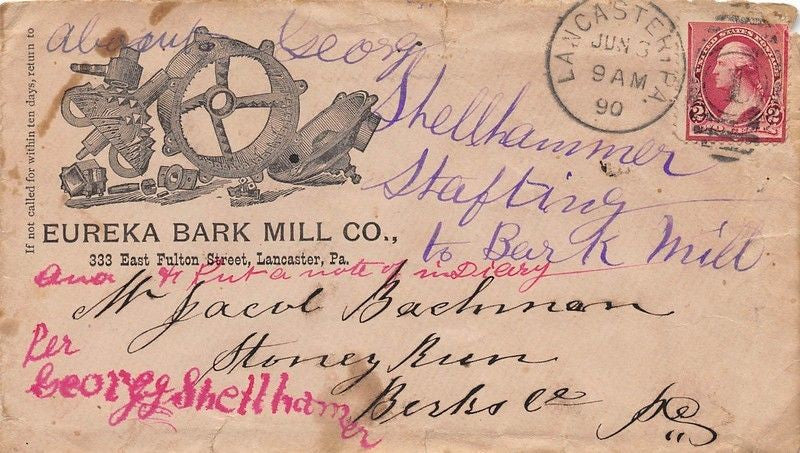 If not called for within ten days, return to
about Georg
Shellhammer
Stafting
to Bark Mill
LANCASTER, PA.
JUN 3
9 AM
90
UNITED STATES POSTAGE
2 2
EUREKA BARK MILL CO.,
333 East Fulton Street, Lancaster, Pa.
and Put a note of in Diary
Mr Jacob Bachman
Stoney Run
Berks Co Pa
Per
Georg Shellhammer